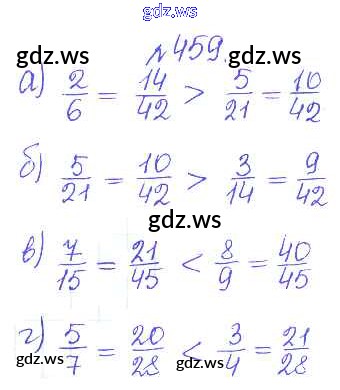 gdz.ws
gdz.ws №459 gdz.ws
а) 2/6 = 14/42 > 5/21 = 10/42
б) 5/21 = 10/42 > 3/14 = 9/42
gdz.ws
в) 7/15 = 21/45 < 8/9 = 40/45
г) 5/7 = 20/28 < 3/4 = 21/28
gdz.ws gdz.ws